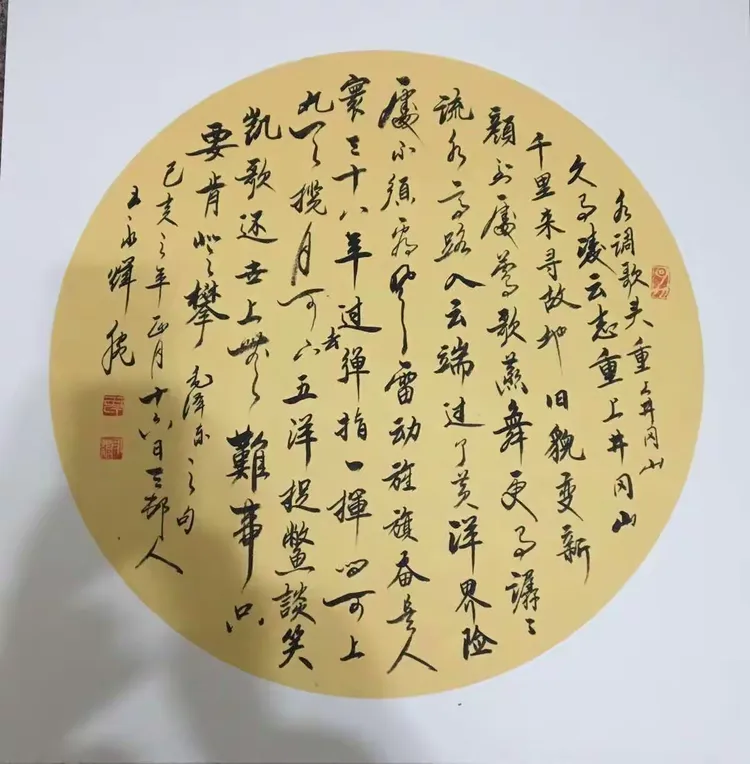 水调歌头重上井冈山
久有凌云志重上井冈山
千里来寻故地旧貌变新
颜到處莺歌燕舞更有潺〻
流水高路入云端过了黄洋界险
處不須看风雷动旌旗奋是人
寰三十八年过去弹指一揮间可上
九天揽月可下五洋捉鳖談笑
凯歌还世上無難事只
要肯登攀 毛泽东之句
己亥之年正月十六日
王永輝